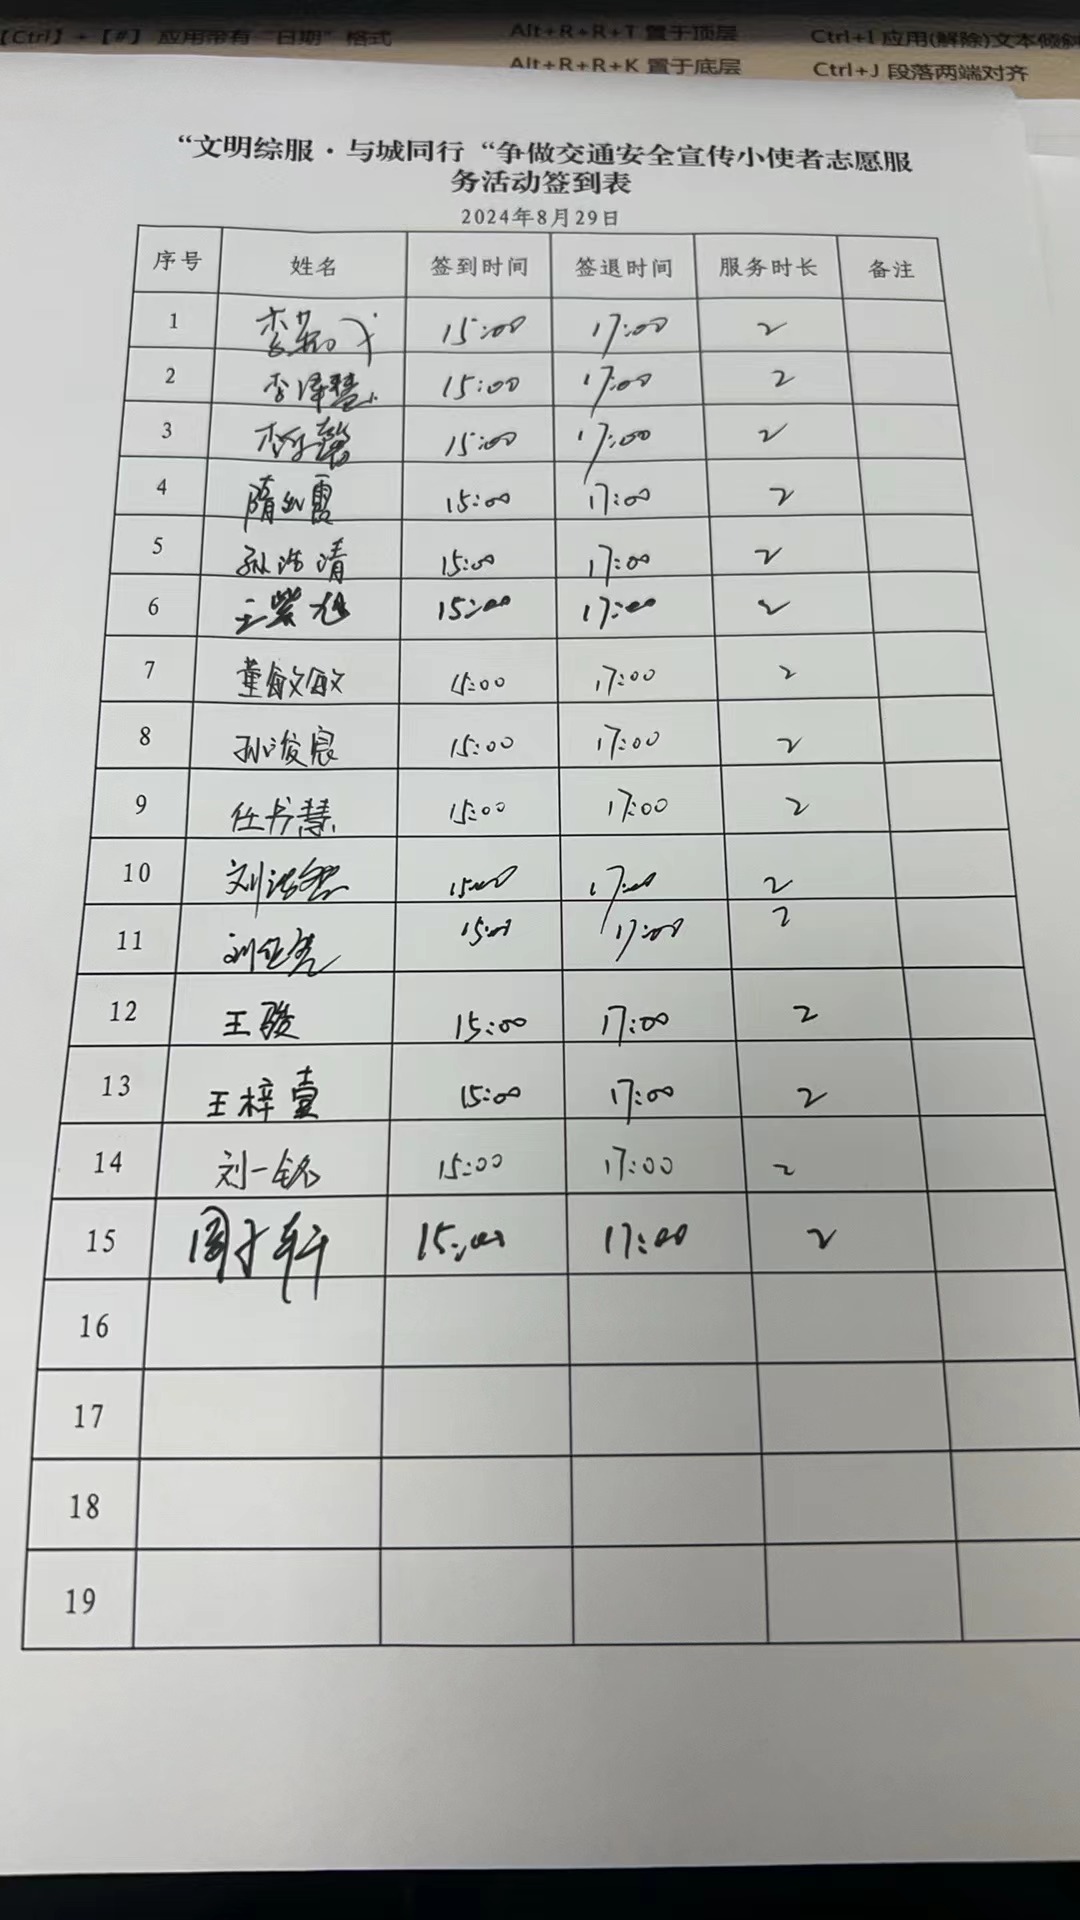 【Ctrl】+【#】 应用带有“日期”格式
Alt+R+R+T 置于顶层
Ctrl+I 应用(解除)文本倾斜
Alt+R+R+K 置于底层
Ctrl+J 段落两端对齐
“文明综服·与城同行“争做交通安全宣传小使者志愿服
务活动签到表
2024年8月29日
序号 姓名 签到时间 签退时间 服务时长 备注
1 15:00 17:00 2
2 李泽慧 15:00 17:00 2
3 15:00 17:00 2
4 隋 霞 15:00 17:00 2
5 孙浩清 15:00 17:00 2
6 王紫旭 15:00 17:00 2
7 董敏敏 15:00 17:00 2
8 孙浚宸 15:00 17:00 2
9 任书慧 15:00 17:00 2
10 刘 15:00 17:00 2
11 刘 15:00 17:00 2
12 王骏 15:00 17:00 2
13 王梓壹 15:00 17:00 2
14 刘一铭 15:00 17:00 2
15 周 轩 15:00 17:00 2
16
17
18
19